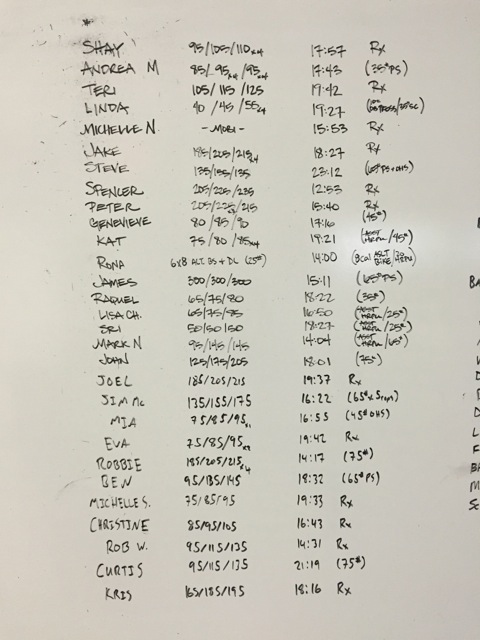 SHAY 95/105/110x4 17:57 Rx
ANDREA M 85/95x4/95x4 17:43 (35# PS)
TERI 105/115/125 19:42 Rx
LINDA 40/45/55x4 19:27
MICHELLE N. -MOBI- 15:53 Rx
JAKE 185/205/215x4 18:27 Rx
STEVE 135/155/135 23:12
SPENCER 205/225/235 12:53 Rx
PETER 205/225/215 15:40 Rx
GENEVIEVE 80/85/90 17:16 (45#)
KAT 75/80/85x4 19:21 (ASST HRPU/45#)
RONA 6x8 ALT. BS + DL (25#) 14:00
JAMES 300/300/300 15:11 (65# PS)
RAQUEL 65/75/80 18:22 (35#)
LISA CH. 65/75/85 16:50 (ASST HRPU/25#)
SRI 50/50/50 18:27 (ASST HRPU/25#)
MARK N 95/145/145 14:04 (ASST HRPU/65#)
JOHN 125/175/205 18:01 (75#)
JOEL 185/205/215 19:37 Rx
JIM MC 135/155/175 16:22
MIA 75/85/95x1 16:55 (45# OHS)
EVA 75/85/95x3 19:42 Rx
ROBBIE 185/205/215x4 14:17 (75#)
BEN 95/135/145 18:32 (65# PS)
MICHELLE S. 75/85/95 19:33 Rx
CHRISTINE 85/95/105 16:43 Rx
ROB W. 95/115/135 14:31 Rx
CURTIS 95/115/135 21:19 (75#)
KRIS 165/185/195 18:16 Rx